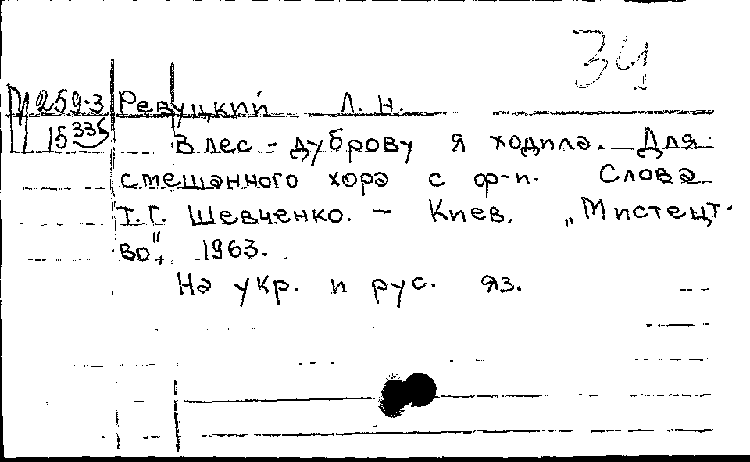 34
П 259-3 Ревуцкий Л. Н.
15 335 В лес - дуброву я ходила. Для
смешанного хора с ф-п. Слова
Т.Г. Шевченко. - Киев. „Мистецт-
во", 1963.
На укр. и рус. яз.